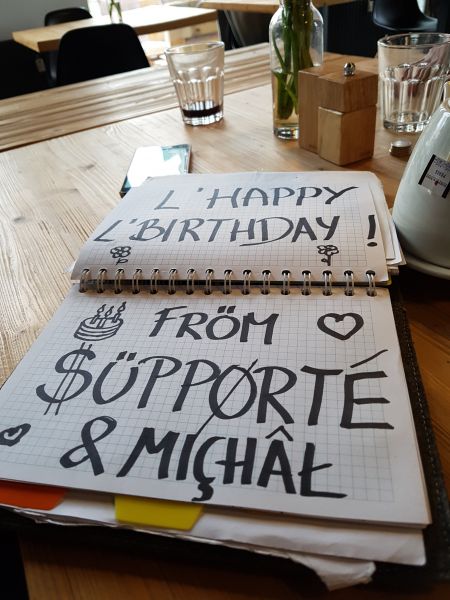 L'HAPPY
L'BIRTHDAY!
FRÖM
$ÜPPØRTÉ
& MIÇHÂŁ